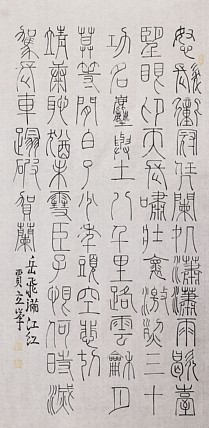 怒髮衝冠凭闌処瀟瀟雨歇臺
望眼仰天長嘯壯懷激烈三十
功名塵與土八千里路雲和月
莫等閒白了少年頭空悲切
靖康恥猶未雪臣子恨何時滅
駕長車蹋破賀蘭
岳飛滿江紅
賈立峯